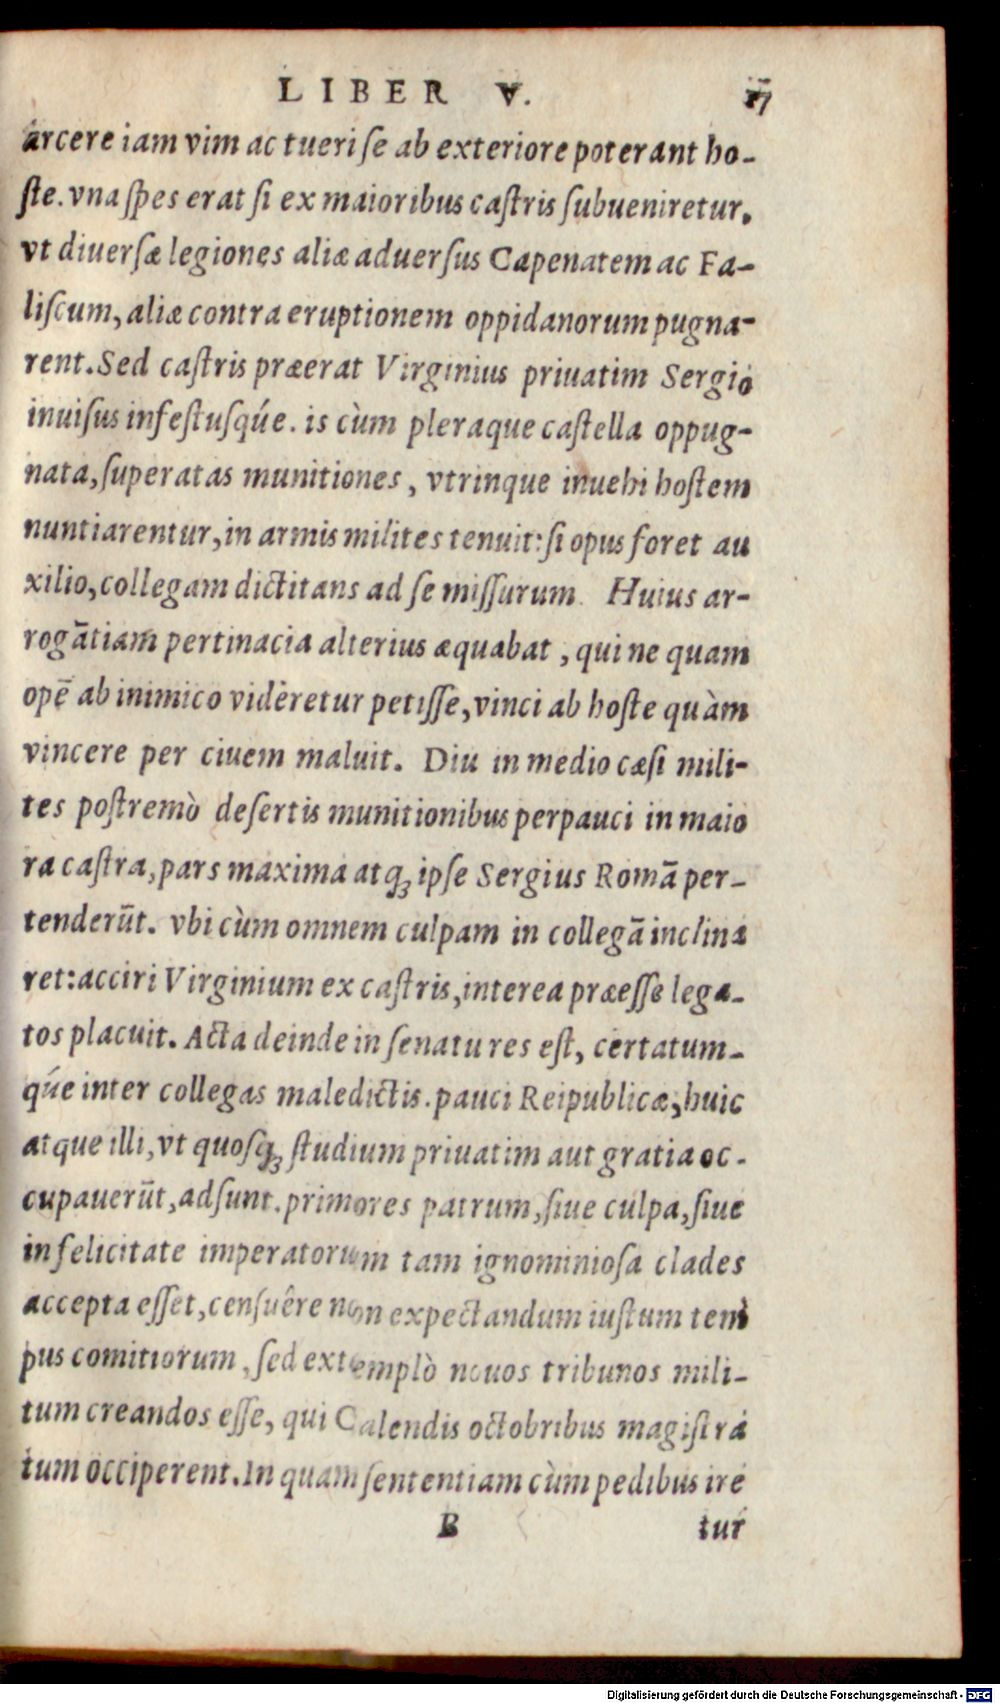 LIBER V. 17
arcere iam vim ac tueri se ab exteriore poterant ho-
ste. vna spes erat si ex maioribus castris subueniretur,
vt diuersæ legiones aliæ aduersus Capenatem ac Fa-
liscum, aliæ contra eruptionem oppidanorum pugna-
rent. Sed castris præerat Virginius priuatim Sergio
inuisus infestusq́ue. is cùm pleraque castella oppug-
nata, superatas munitiones, vtrinque inuehi hostem
nuntiarentur, in armis milites tenuit: si opus foret au
xilio, collegam dictitans ad se missurum. Huius ar-
rogãtiam pertinacia alterius æquabat, qui ne quam
opẽ ab inimico videretur petisse, vinci ab hoste quàm
vincere per ciuem maluit. Diu in medio cæsi mili-
tes postremò desertis munitionibus perpauci in maio
ra castra, pars maxima atq; ipse Sergius Romã per-
tenderũt. vbi cùm omnem culpam in collegã inclina
ret: acciri Virginium ex castris, interea præesse lega-
tos placuit. Acta deinde in senatu res est, certatum-
q́ue inter collegas maledictis. pauci Reipublicæ, huic
atque illi, vt quosq; studium priuatim aut gratia oc-
cupauerũt, adsunt. primores patrum, siue culpa, siue
infelicitate imperatorum tam ignominiosa clades
accepta esset, censuêre non expectandum iustum tem
pus comitiorum, sed extemplò nouos tribunos mili-
tum creandos esse, qui Calendis octobribus magistra
tum occiperent. In quam sententiam cùm pedibus ire
B tur
Digitalisierung gefördert durch die Deutsche Forschungsgemeinschaft - DFG